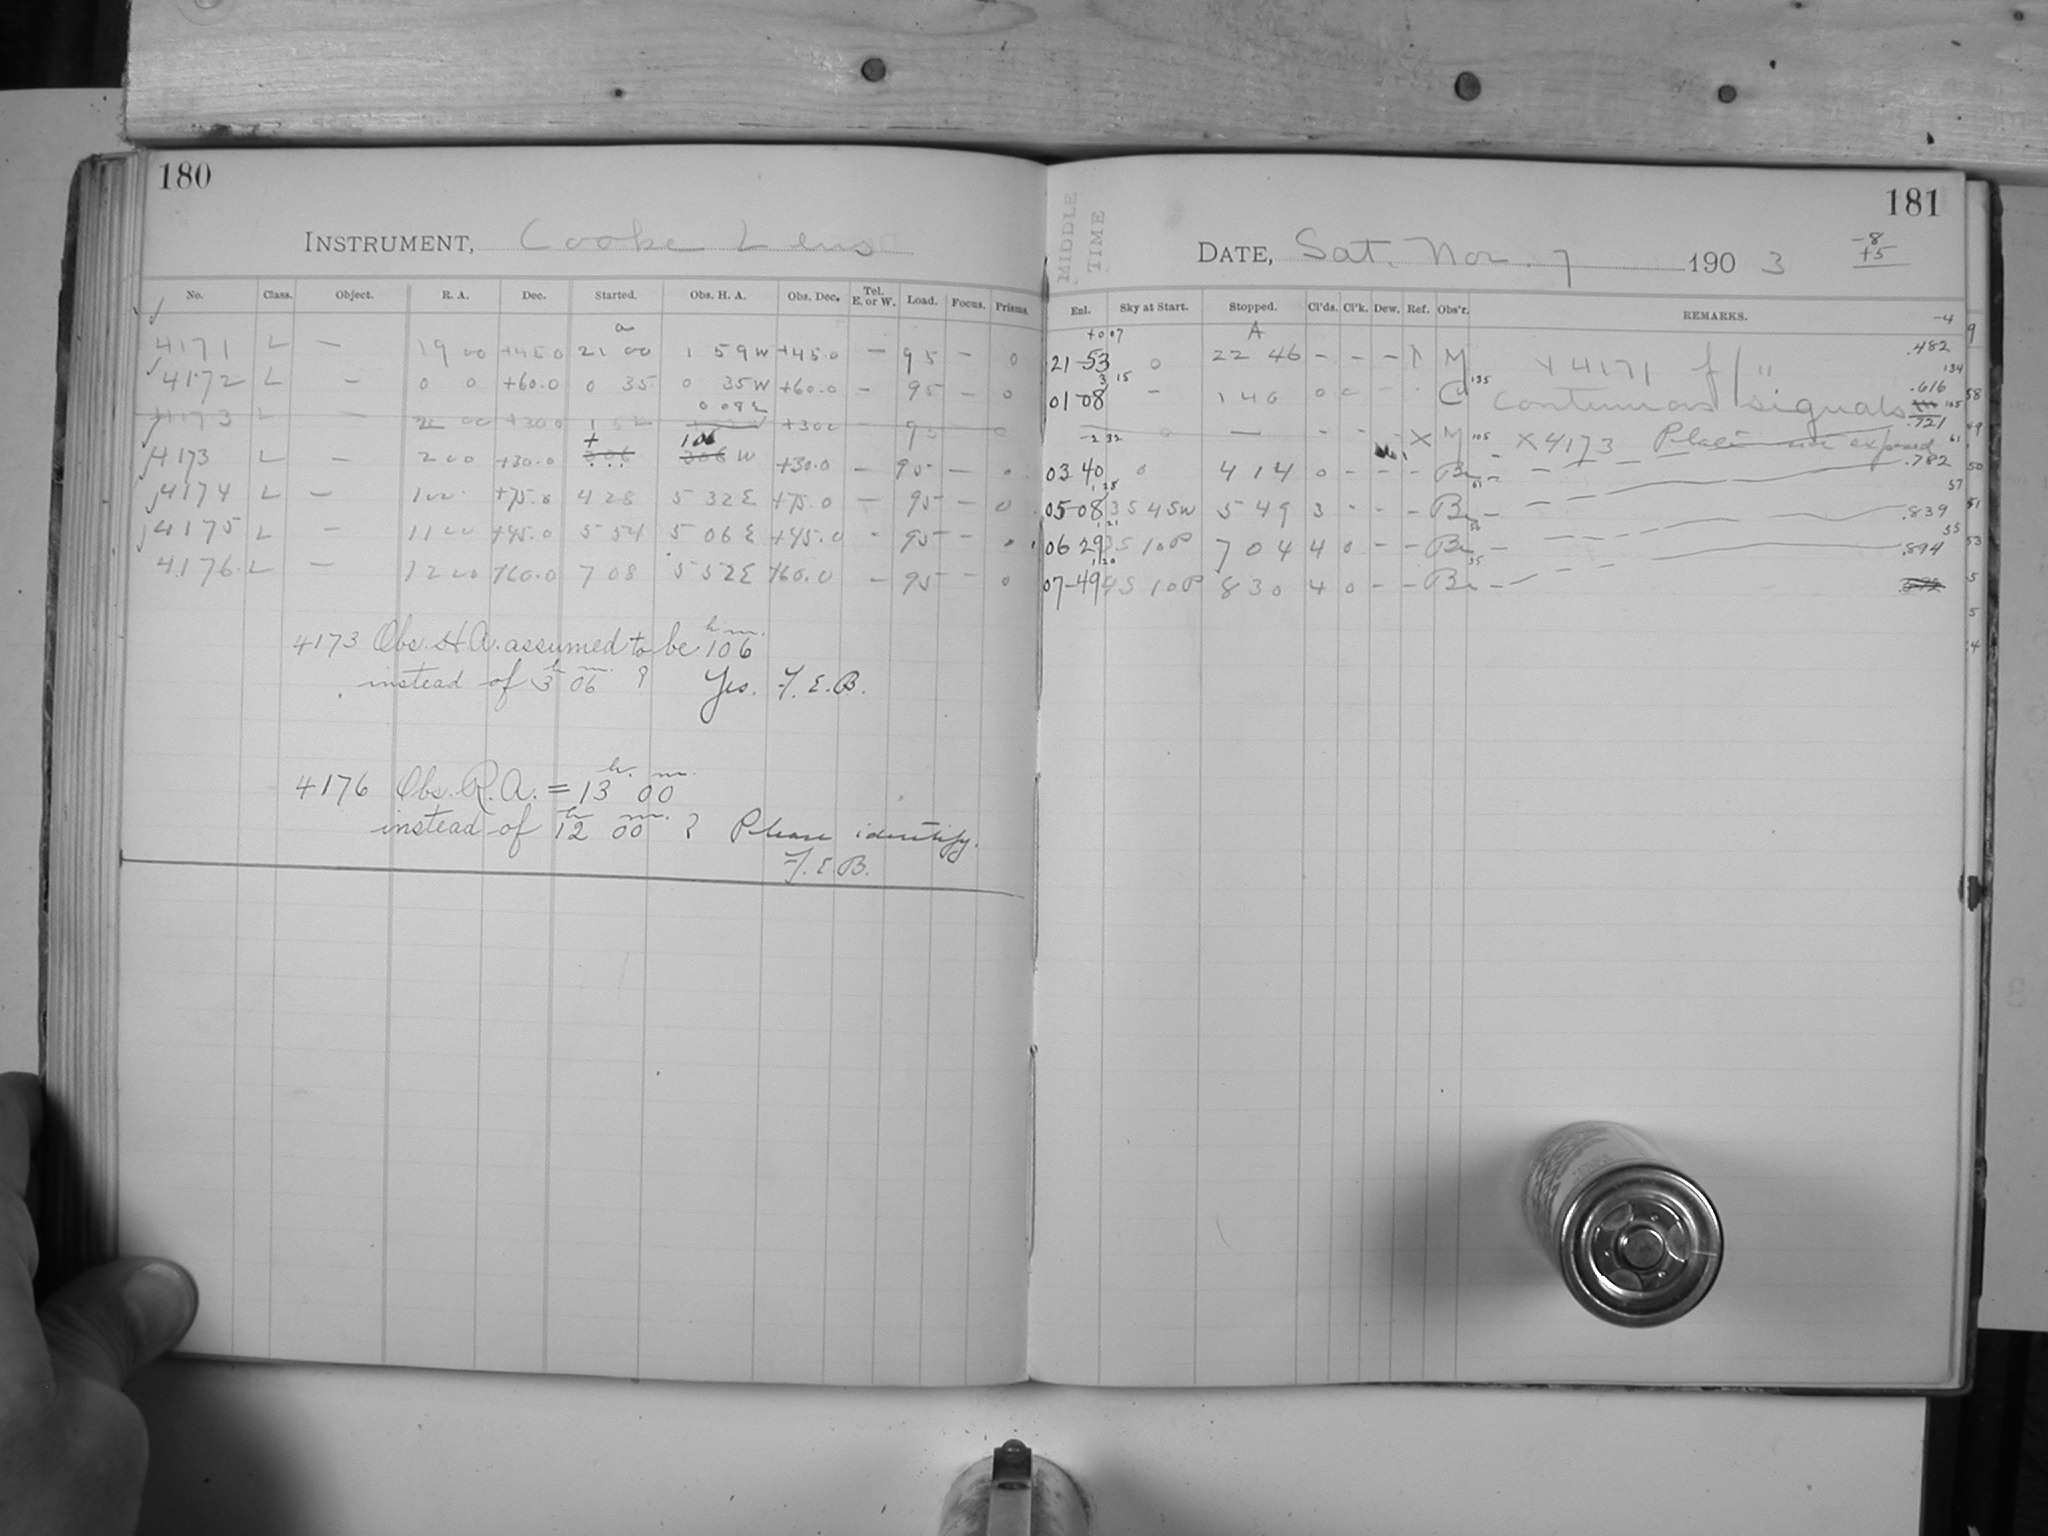 180
INSTRUMENT, Cooke Lens
No. Class. Object. R. A. Dec. Started. Obs. H. A. Obs. Dec. Tel. E. or W. Load. Focus. Prisms.
4171 L — 19 00 +45.0 21 00 1 59 W +45.0 — 95 — 0
4172 L — 0 0 +60.0 0 35 0 35 W +60.0 — 95 — 0
4173 L — +30.0 1 52 0 08 E +300 — 95 — 0
4173 L — 2 00 +30.0 306 106 306 W +30.0 — 95 — 0
4174 L — +75.0 4 28 5 32 E +75.0 — 95 — 0
4175 L — 11 00 +45.0 5 54 5 06 E +45.0 - 95 —
4176 L — 12 00 +60.0 7 08 5 52 E +60.0 — 95 — 0
4173 Obs. H.A. assumed to be 1 h 06 m.
instead of 3 h 06 m. ? Yes. F. E. B.
4176 Obs. R.A. = 13 h. 00 m.
instead of 12 h 00 m. ? Please identify.
F. E. B.
181
MIDDLE TIME
DATE, Sat. Nov. 7 190 3
-8
+5
Enl. Sky at Start. Stopped. Cl'ds. Cl'k. Dew. Ref. Obs'r. REMARKS.
-4
+0 07 A
21-53 0 22 46 - - - M X 4171 .482
134
3 15
01-08 - 1 46 0 - - C 135 Continuous signals .616
105
.721
-2 32 0 — - - - X M 105 X 4173 Plate not exposed 61
03 40 0 4 14 0 - - - Br 61 .782
1 28 57
05-08 3S 45W 5 49 3 - - - Br .839
1 21 55
06 29 3S 10P 7 04 4 0 - - Br .894
1 20 55
07-49 4S 10P 8 30 4 0 - - Br